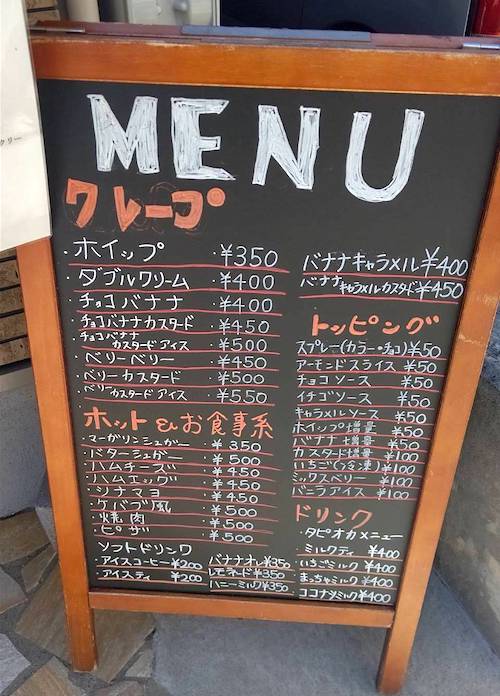 MENU
クレープ
・ホイップ ・¥350
・ダブルクリーム ・¥400
・チョコバナナ ・¥400
・チョコバナナカスタード ・¥450
・チョコバナナカスタードアイス ・¥500
・ベリーベリー ・¥450
・ベリーカスタード ・¥500
・ベリーカスタードアイス ・¥550
バナナキャラメル ¥400
バナナキャラメルカスタード ¥450
ホット&お食事系
・マーガリンシュガー ・¥350
・バターシュガー ・¥500
・ハムチーズ ・¥450
・ハムエッグ ・¥450
・シナマヨ ・¥450
・ケバブ風 ・¥500
・焼肉 ・¥500
・ピザ ・¥500
トッピング
スプレー(カラー・チョコ) ¥50
アーモンドスライス ¥50
チョコソース ¥50
イチゴソース ¥50
キャラメルソース ¥50
ホイップ増量 ¥50
バナナ増量 ¥50
カスタード増量 ¥100
いちご(冷凍) ¥100
ミックスベリー ¥100
バニラアイス ¥100
ソフトドリンク
・アイスコーヒー ¥200
・アイスティ ¥200
バナナオレ ¥350
レモネード ¥350
ハニーミルク ¥350
ドリンク
・タピオカメニュー
・ミルクティ ¥400
・いちごミルク ¥400
・まっちゃミルク ¥400
ココナッツミルク ¥400